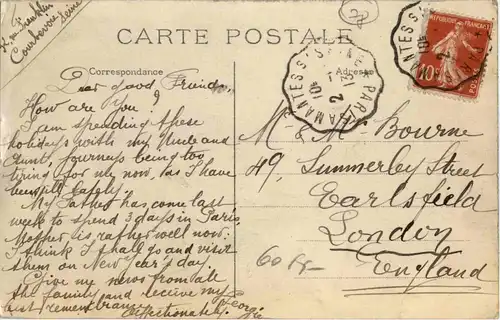 Courbevoie
Seine
CARTE POSTALE
Correspondance
Adresse
MANTES S SEINE A PARIS
10
2
31
REPUBLIQUE FRANÇAISE
10c
POSTES
Dear good Friends,
How are you?
I am spending these
holidays with my Uncle and
Aunt, journeys being too
tiring for me now, as I have
been ill lately.
My Father has come last
week to spend 3 days in Paris
Mother is rather well now.
I think I shall go and visit
them on New Year's day.
Give me news from all
the family and receive my
best remembrances
Affectionately. Georgie
M. & Mrs Bourne
49, Summerley Street
Earlsfield
London
England
60